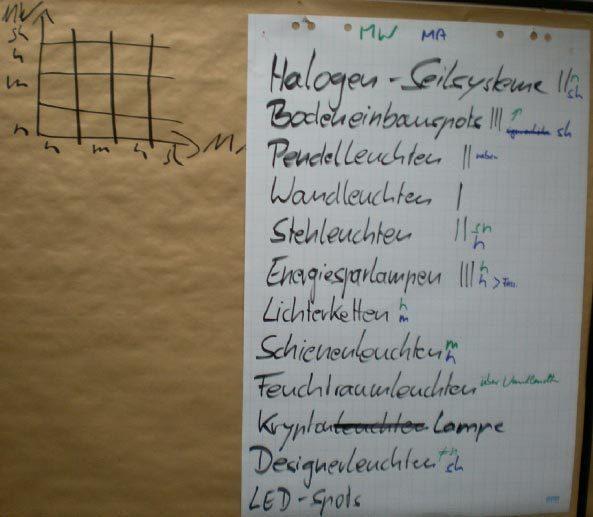 MW
sh
h
m
n
n m h sh
MW MA
Halogen-Seilsysteme || h sh
Bodeneinbauspots ||| ↑ sh
Pendelleuchten || neben
Wandleuchten |
Stehleuchten || sh h
Energiesparlampen ||| h h >
Lichterketten h m
Schienenleuchten m h
Feuchtraumleuchten über Wandleuchte
Kryptonleuchten Lampe
Designerleuchten sh
LED-Spots